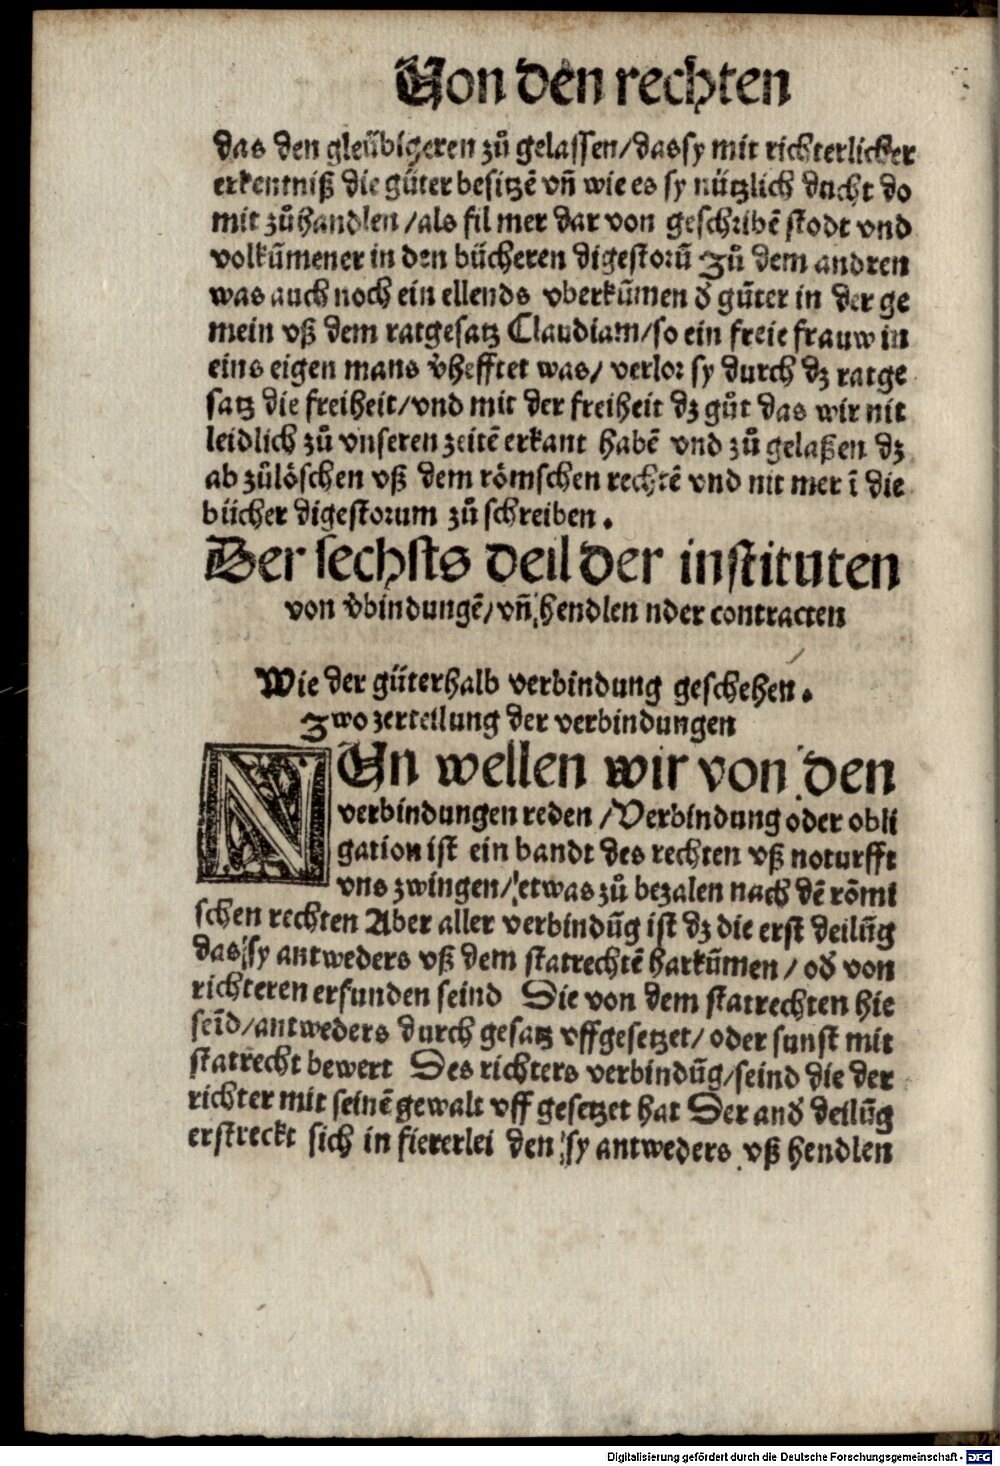 Von den rechten
das den gleübigeren zů gelassen/das sy mit richterlicher
erkentniß die güter besitzẽ vñ wie es sy nützlich ducht do
mit zůhandlen/als fil mer dar von geschribẽ stodt vnd
volkũmener in den bücheren digestorũ Zů dem andren
was auch noch ein ellends vberkũmen d̕ güter in der ge
mein vß dem ratgesatz Claudiam/so ein freie frauw in
eins eigen mans v̕hefftet was/ verlor sy durch dz ratge
satz die freiheit/vnd mit der freiheit dz gůt das wir nit
leidlich zů vnseren zeitẽ erkant habẽ vnd zů gelaßen dz
ab zůlöschen vß dem römschen rechtẽ vnd nit mer ĩ die
bücher digestorum zů schreiben.
Der sechsts deil der instituten
von v̕bindungẽ/vñ hendlen nder contracten
Wie der güterhalb verbindung geschehen.
Zwo zerteilung der verbindungen
NUn wellen wir von den
verbindungen reden/Verbindung oder obli
gation ist ein bandt des rechten vß noturfft
vns zwingen/etwas zů bezalen nach dẽ rõmi
schen rechten Aber aller verbindũg ist dz die erst deilũg
das sy antweders vß dem statrechtẽ harkũmen/od̕ von
richteren erfunden seind Die von dem statrechten hie
seĩd/antweders durch gesatz vffgesetzet/oder sunst mit
statrecht bewert Des richters verbindũg/seind die der
richter mit seinẽ gewalt vff gesetzet hat Der and̕ deilũg
erstreckt sich in fiererlei den sy antweders vß hendlen
Digitalisierung gefördert durch die Deutsche Forschungsgemeinschaft - DFG